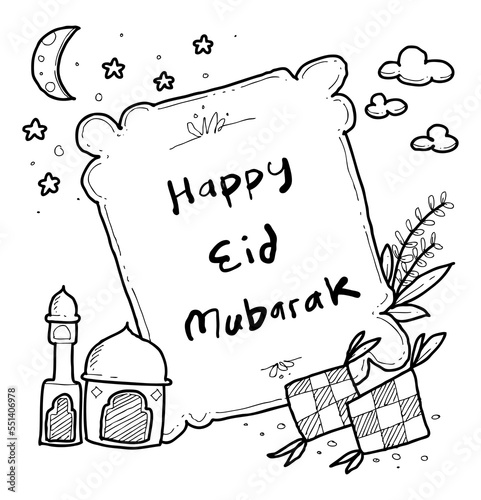 Happy
Eid
Mubarak
Adobe Stock | #551406978